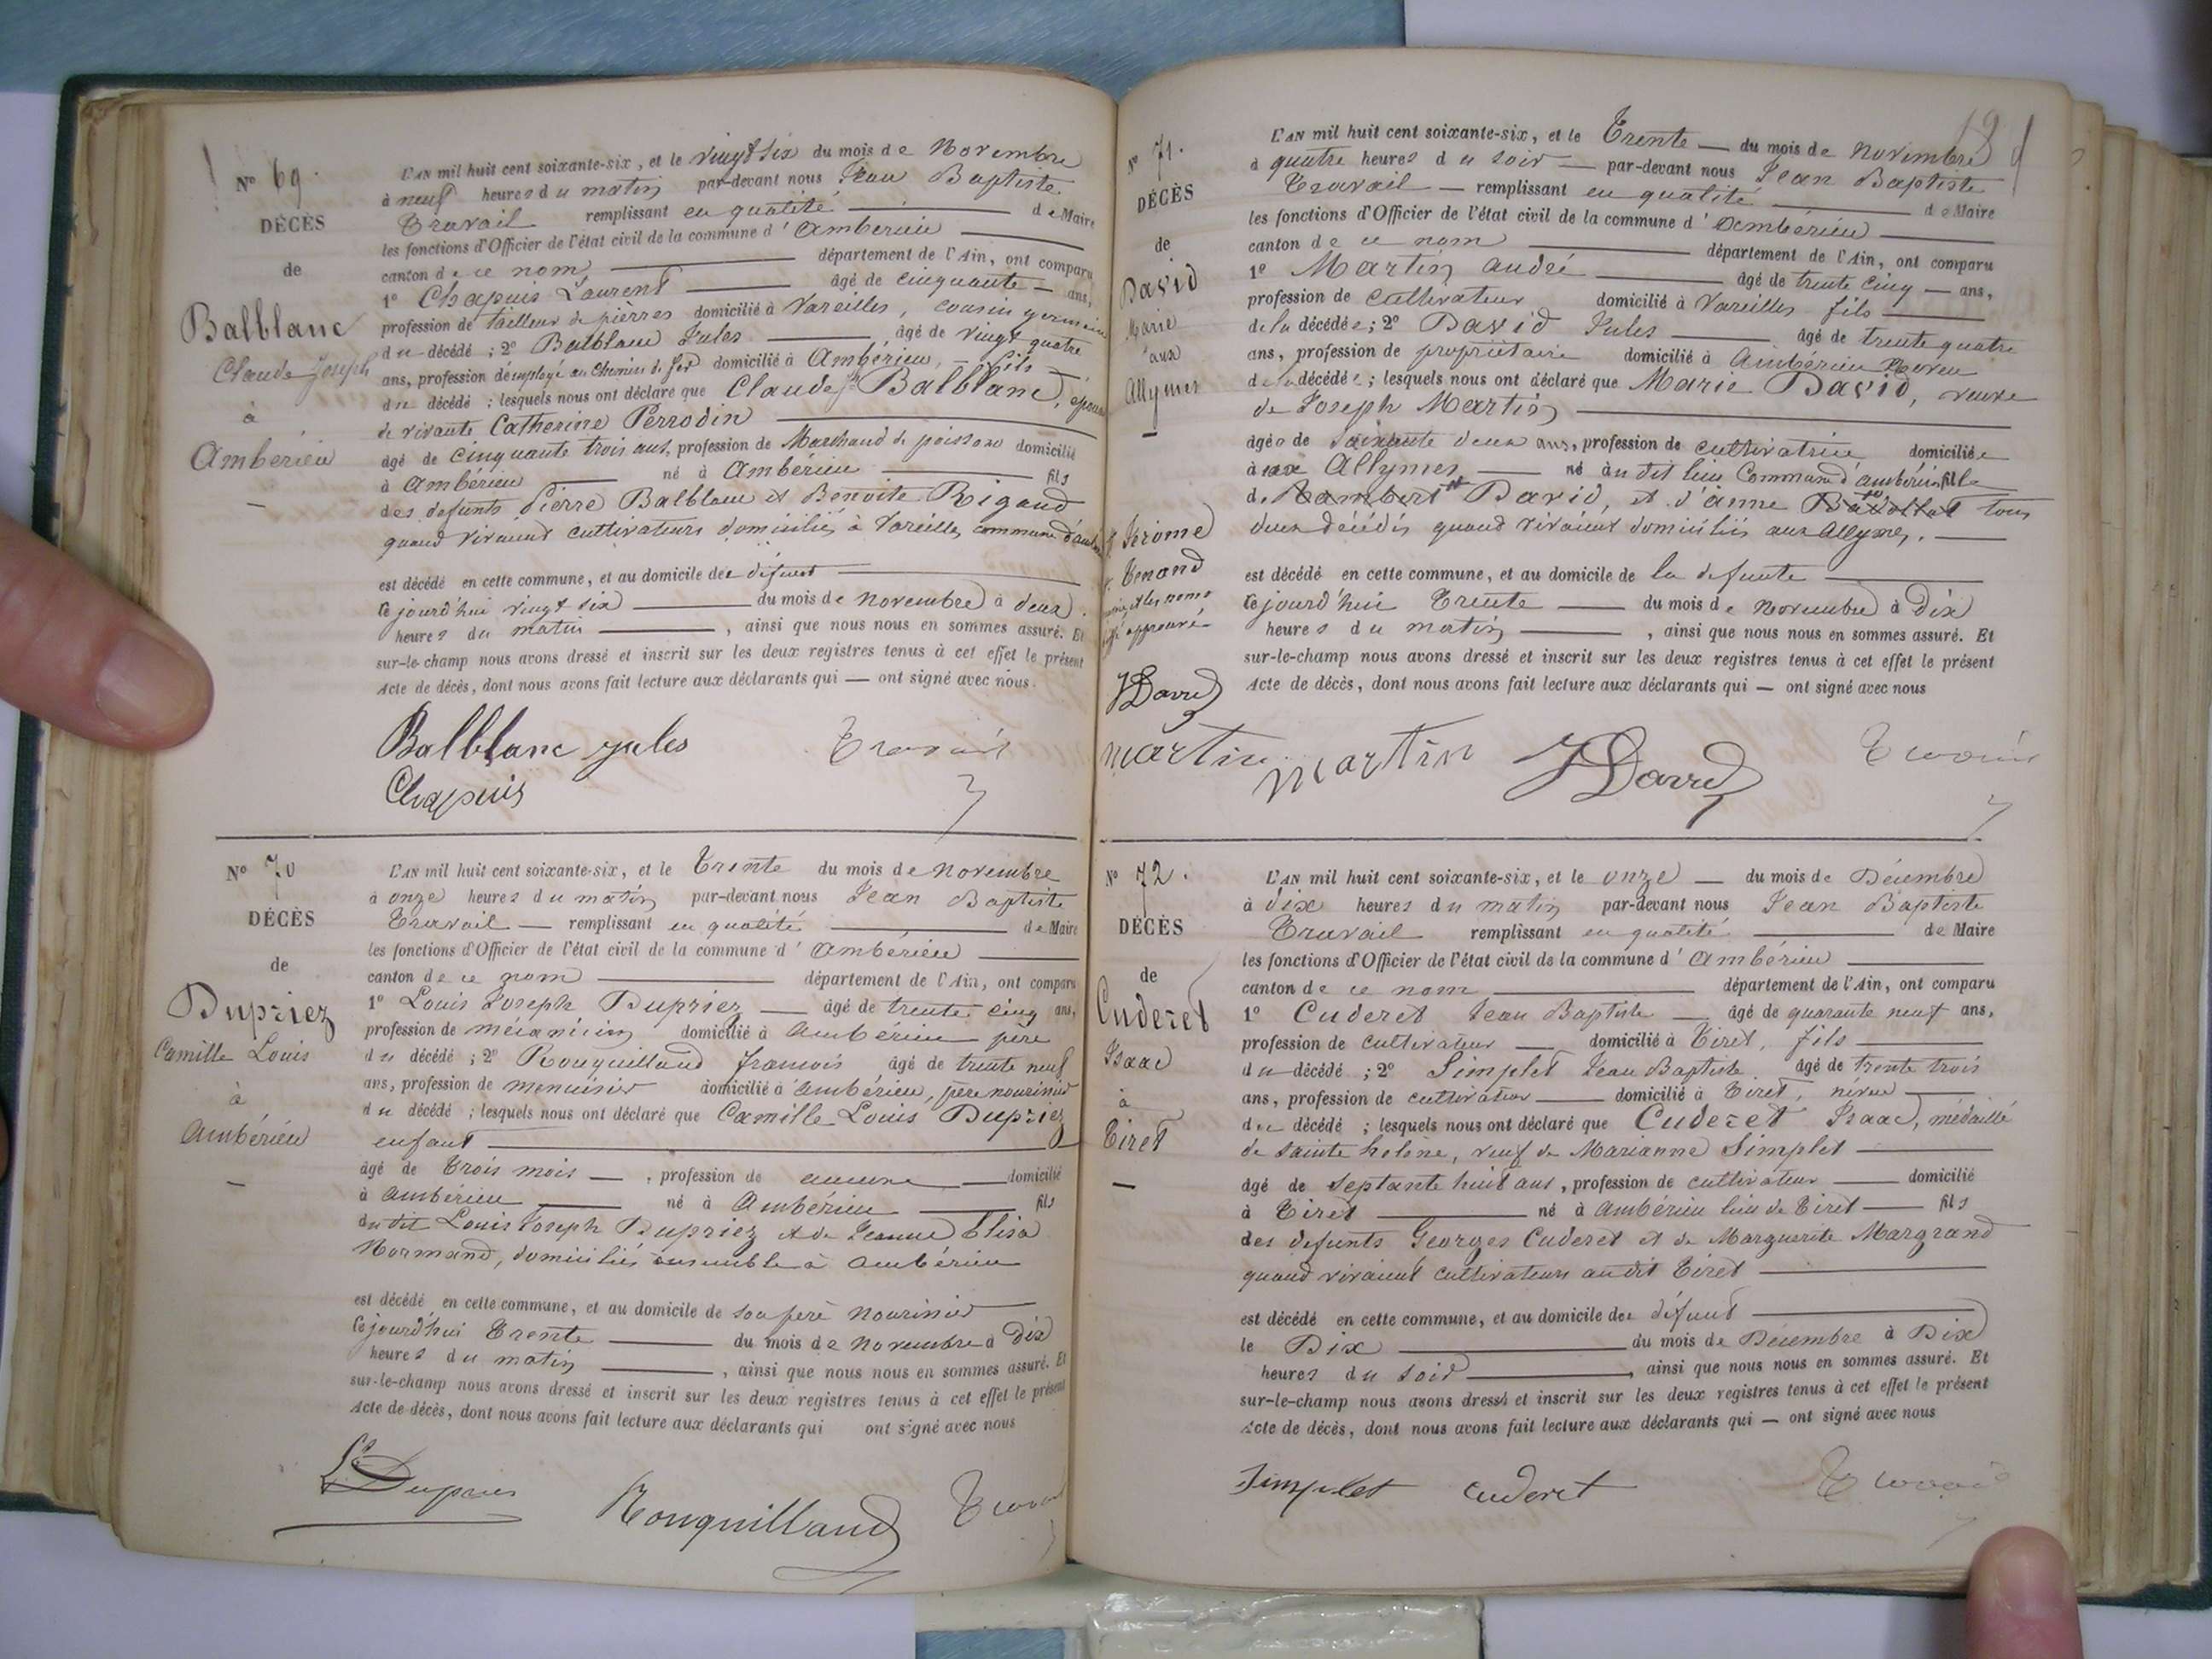 N° 69.
DÉCÈS
de
Balblanc
Claude Joseph
à
Ambérieu
L'AN mil huit cent soixante-six, et le vingt six du mois de Novembre
à neuf heures du matin par-devant nous Jean Baptiste
Travail remplissant en qualité de Maire
les fonctions d'Officier de l'état civil de la commune d'Ambérieu
canton de ce nom département de l'Ain, ont comparu
1° Chapuis Laurent âgé de cinquante ans,
profession de tailleur de pierres domicilié à Vareilles, cousin germain
du décédé ; 2° Balblanc Jules âgé de vingt quatre
ans, profession d'employé au chemin de fer domicilié à Ambérieu, fils
du décédé ; lesquels nous ont déclaré que Claude Jh Balblanc, époux
de vivante Catherine Perrodin
âgé de cinquante trois ans, profession de Marchand de poisson domicilié
à Ambérieu né à Ambérieu fils
des defunts Pierre Balblanc et Benoite Rigaud
quand vivaient cultivateurs domiciliés à Vareilles commune
est décédé en cette commune, et au domicile des défunt
ce jourd'hui vingt six du mois de novembre à deux
heures du matin, ainsi que nous nous en sommes assuré. Et
sur-le-champ nous avons dressé et inscrit sur les deux registres tenus à cet effet le présent
Acte de décès, dont nous avons fait lecture aux déclarants qui — ont signé avec nous.
Balblanc jules Travail
Chapuis
N° 70
DÉCÈS
de
Dupriez
Camille Louis
à
Ambérieu
L'AN mil huit cent soixante-six, et le Trente du mois de novembre
à onze heures du matin par-devant nous Jean Baptiste
Travail — remplissant en qualité de Maire
les fonctions d'Officier de l'état civil de la commune d'Ambérieu
canton de ce nom département de l'Ain, ont comparu
1° Louis Joseph Dupriez — âgé de trente cinq ans,
profession de mécanicien domicilié à Ambérieu père
du décédé ; 2° Rouquilland françois âgé de trente neuf
ans, profession de menuisier domicilié à Ambérieu, père nouricier
du décédé ; lesquels nous ont déclaré que Camille Louis Dupriez
enfant
âgé de Trois mois —, profession de aucune — domicilié
à Ambérieu né à Ambérieu fils
du dit Louis Joseph Dupriez et de Jeanne Elisa
Normand, domiciliés ensemble à Ambérieu
est décédé en cette commune, et au domicile de son père nouricier
ce jourd'hui Trente du mois de novembre à Dix
heures du matin, ainsi que nous nous en sommes assuré. Et
sur-le-champ nous avons dressé et inscrit sur les deux registres tenus à cet effet le présent
Acte de décès, dont nous avons fait lecture aux déclarants qui ont signé avec nous
Rouquilland
N° 71.
DÉCÈS
de
David
Marie
aux
Allymes
Jérome
Tenand
approuvé
JDavid
martin
L'AN mil huit cent soixante-six, et le Trente — du mois de novembre
à quatre heures du soir — par-devant nous Jean Baptiste
Travail — remplissant en qualité de Maire
les fonctions d'Officier de l'état civil de la commune d'Ambérieu
canton de ce nom département de l'Ain, ont comparu
1° Martin André âgé de trente cinq — ans,
profession de cultivateur domicilié à Vareilles fils
de la décédée ; 2° David Jules âgé de trente quatre
ans, profession de propriétaire domicilié à Ambérieu Neveu
de la décédée ; lesquels nous ont déclaré que Marie David, veuve
de Joseph Martin
âgée de soixante deux ans, profession de cultivatrice domiciliée
à aux Allymes né au dit lieu Commune d'ambérieu fille
de Rambert David, et d'anne tous
deux décédés quand vivaient domiciliés aux Allymes.
est décédé en cette commune, et au domicile de la defunte
ce jourd'hui Trente du mois de novembre à Dix
heures du matin, ainsi que nous nous en sommes assuré. Et
sur-le-champ nous avons dressé et inscrit sur les deux registres tenus à cet effet le présent
Acte de décès, dont nous avons fait lecture aux déclarants qui — ont signé avec nous
martin JDavid
N° 72.
DÉCÈS
de
Cuderet
Isaac
à
Tiret
L'AN mil huit cent soixante-six, et le onze — du mois de Décembre
à dix heures du matin par-devant nous Jean Baptiste
Travail remplissant en qualité de Maire
les fonctions d'Officier de l'état civil de la commune d'Ambérieu
canton de ce nom département de l'Ain, ont comparu
1° Cuderet Jean Baptiste — âgé de quarante neuf ans,
profession de cultivateur — domicilié à Tiret, fils
du décédé ; 2° Simplet Jean Baptiste âgé de trente trois
ans, profession de cultivateur — domicilié à Tiret, néveu
du décédé ; lesquels nous ont déclaré que Cuderet Isaac, médaillé
de sainte helène, veuf de Marianne Simplet
âgé de septante huit ans, profession de cultivateur — domicilié
à Tiret né à Ambérieu lieu de Tiret — fils
des defunts Georges Cuderet et de Marguerite Margrand
quand vivaient cultivateurs audit Tiret
est décédé en cette commune, et au domicile des défunt
le Dix du mois de Décembre à Dix
heures du soir, ainsi que nous nous en sommes assuré. Et
sur-le-champ nous avons dressé et inscrit sur les deux registres tenus à cet effet le présent
Acte de décès, dont nous avons fait lecture aux déclarants qui — ont signé avec nous
Simplet cuderet